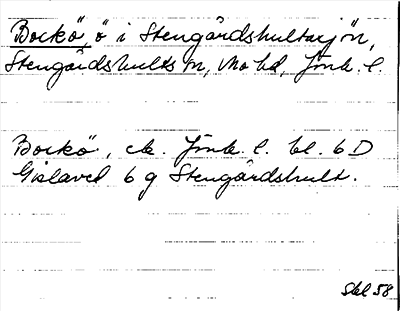 Bockö, ö i Stengårdshultasjön,
Stengårdshults sn, Mo hd, Jönk. l.
Bockö, ek. Jönk. l. bl. 6 D
Gislaved 6 g Stengårdshult.
Skl 58